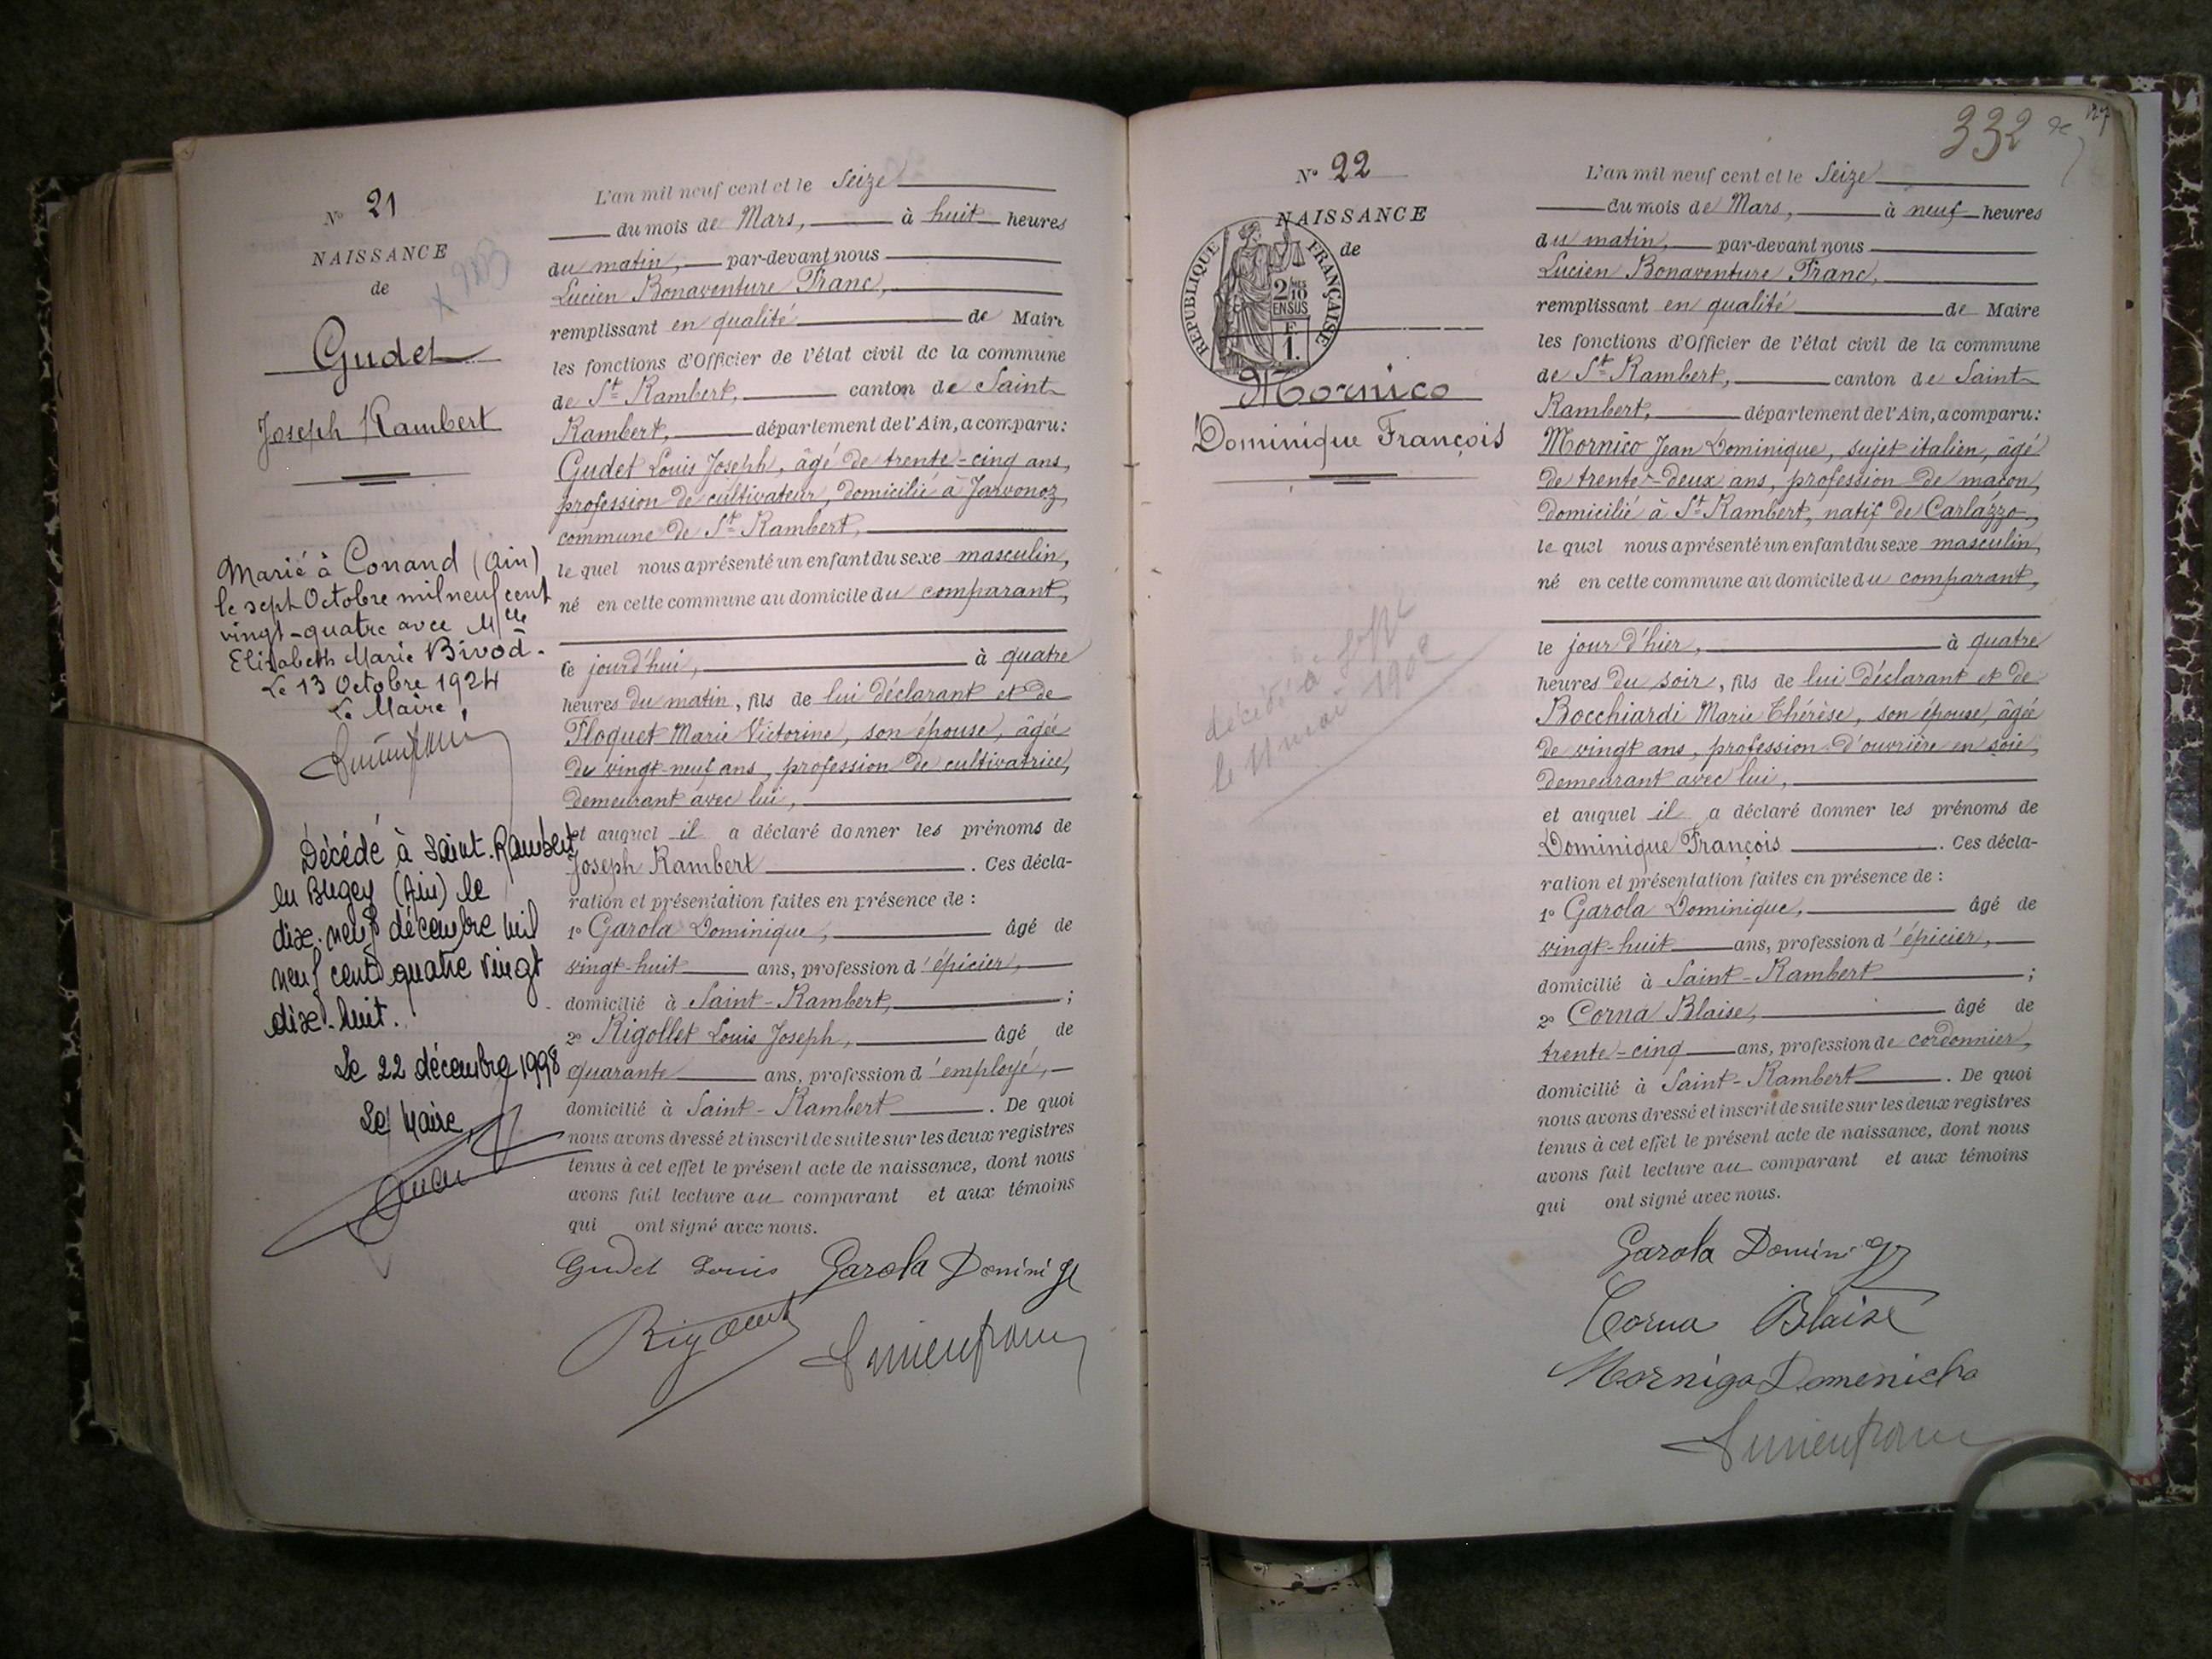 N° 21
NAISSANCE
de
Gudet
Joseph Rambert
Marié à Conand (Ain)
le sept Octobre mil neuf cent
vingt-quatre avec Mlle
Elisabeth Marie Bivod.
Le 13 Octobre 1924
Le Maire,
Décédé à Saint-Rambert
en Bugey (Ain) le
dix-neuf décembre mil
neuf cent quatre vingt
dix-huit.
Le 22 décembre 1998
Le Maire
L'an mil neuf cent et le Seize
du mois de Mars, à huit heures
du matin, par-devant nous
Lucien Bonaventure Franc,
remplissant en qualité de Maire
les fonctions d'Officier de l'état civil de la commune
de St Rambert, canton de Saint-
Rambert, département de l'Ain, a comparu:
Gudet Louis Joseph, âgé de trente-cinq ans,
profession de cultivateur, domicilié à Javonoz,
commune de St Rambert,
le quel nous a présenté un enfant du sexe masculin,
né en cette commune au domicile du comparant,
ce jourd'hui, à quatre
heures du matin, fils de lui déclarant et de
Floquet Marie Victorine, son épouse, âgée
de vingt-neuf ans, profession de cultivatrice,
demeurant avec lui,
et auquel il a déclaré donner les prénoms de
Joseph Rambert. Ces décla-
ration et présentation faites en présence de :
1° Garola Dominique, âgé de
vingt-huit ans, profession d'épicier,
domicilié à Saint-Rambert, ;
2° Rigollet Louis Joseph, âgé de
quarante ans, profession d'employé,
domicilié à Saint-Rambert. De quoi
nous avons dressé et inscrit de suite sur les deux registres
tenus à cet effet le présent acte de naissance, dont nous
avons fait lecture au comparant et aux témoins
qui ont signé avec nous.
Gudet Louis Garola Domini
332
N° 22
NAISSANCE
de
REPUBLIQUE FRANÇAISE
2/10 MES
EN SUS
F.
1.
Mornico
Dominique François
décédé à
le 11 mai 1902
L'an mil neuf cent et le Seize
du mois de Mars, à neuf heures
du matin, par-devant nous
Lucien Bonaventure Franc,
remplissant en qualité de Maire
les fonctions d'Officier de l'état civil de la commune
de St Rambert, canton de Saint-
Rambert, département de l'Ain, a comparu:
Mornico Jean Dominique, sujet italien, âgé
de trente-deux ans, profession de maçon,
domicilié à St Rambert, natif de Carlazzo,
le quel nous a présenté un enfant du sexe masculin,
né en cette commune au domicile du comparant,
le jour d'hier, à quatre
heures du soir, fils de lui déclarant et de
Bocchiardi Marie Thérèse, son épouse, âgée
de vingt ans, profession d'ouvrière en soie,
demeurant avec lui,
et auquel il a déclaré donner les prénoms de
Dominique François. Ces décla-
ration et présentation faites en présence de :
1° Garola Dominique, âgé de
vingt-huit ans, profession d'épicier,
domicilié à Saint-Rambert ;
2° Corna Blaise, âgé de
trente-cinq ans, profession de cordonnier,
domicilié à Saint-Rambert. De quoi
nous avons dressé et inscrit de suite sur les deux registres
tenus à cet effet le présent acte de naissance, dont nous
avons fait lecture au comparant et aux témoins
qui ont signé avec nous.
Garola Domini
Corna Blaise
Morniga Domenicho